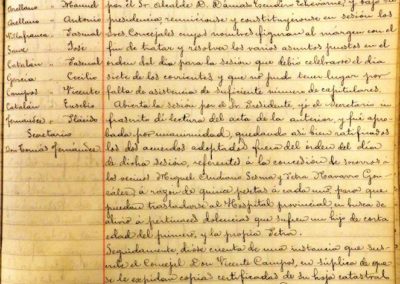 Arellano " Manuel
Arellano " Antonio
Villafranca " Pascual
Sanz " José
Catalán " Pascual
García " Cecilio
Campos " Vicente
Catalán " Eusebio
Jernández " Plácido
Secretario
Don Tomás Jernández
por el Sr. Alcalde D. Dámaso Echeverría, y bajo su
presidencia, reuniéronse y constituyéronse en sesión los
tres Concejales cuyos nombres figuran al margen con el
fin de tratar y resolver los varios asuntos puestos en el
orden del día para la sesión que debió celebrarse el día
siete de los corrientes y que no pudo tener lugar por
falta de asistencia de suficiente número de capitulares.
Abierta la sesión por el Sr. Presidente, yo el secretario in-
frascrito dí lectura del acta de la anterior, y fué apro-
bada por unanimidad, quedando así bien ratificados
los dos acuerdos adoptados fuera del orden del día
de dicha sesión, referentes á la concesión de socorros á
los vecinos Miguel Serna y Petra Navarro Gon-
zález, á razón de quince pesetas á cada uno para que
puedan trasladarse al Hospital provincial, en busca de
alivio á pertinaces dolencias que sufren un hijo de corta
edad del primero, y la propia Petra.
Seguidamente, dióse cuenta de una instancia que sus-
cribe el Concejal Don Vicente Campos, en súplica de que
se expidan copias certificadas de su hoja catastral